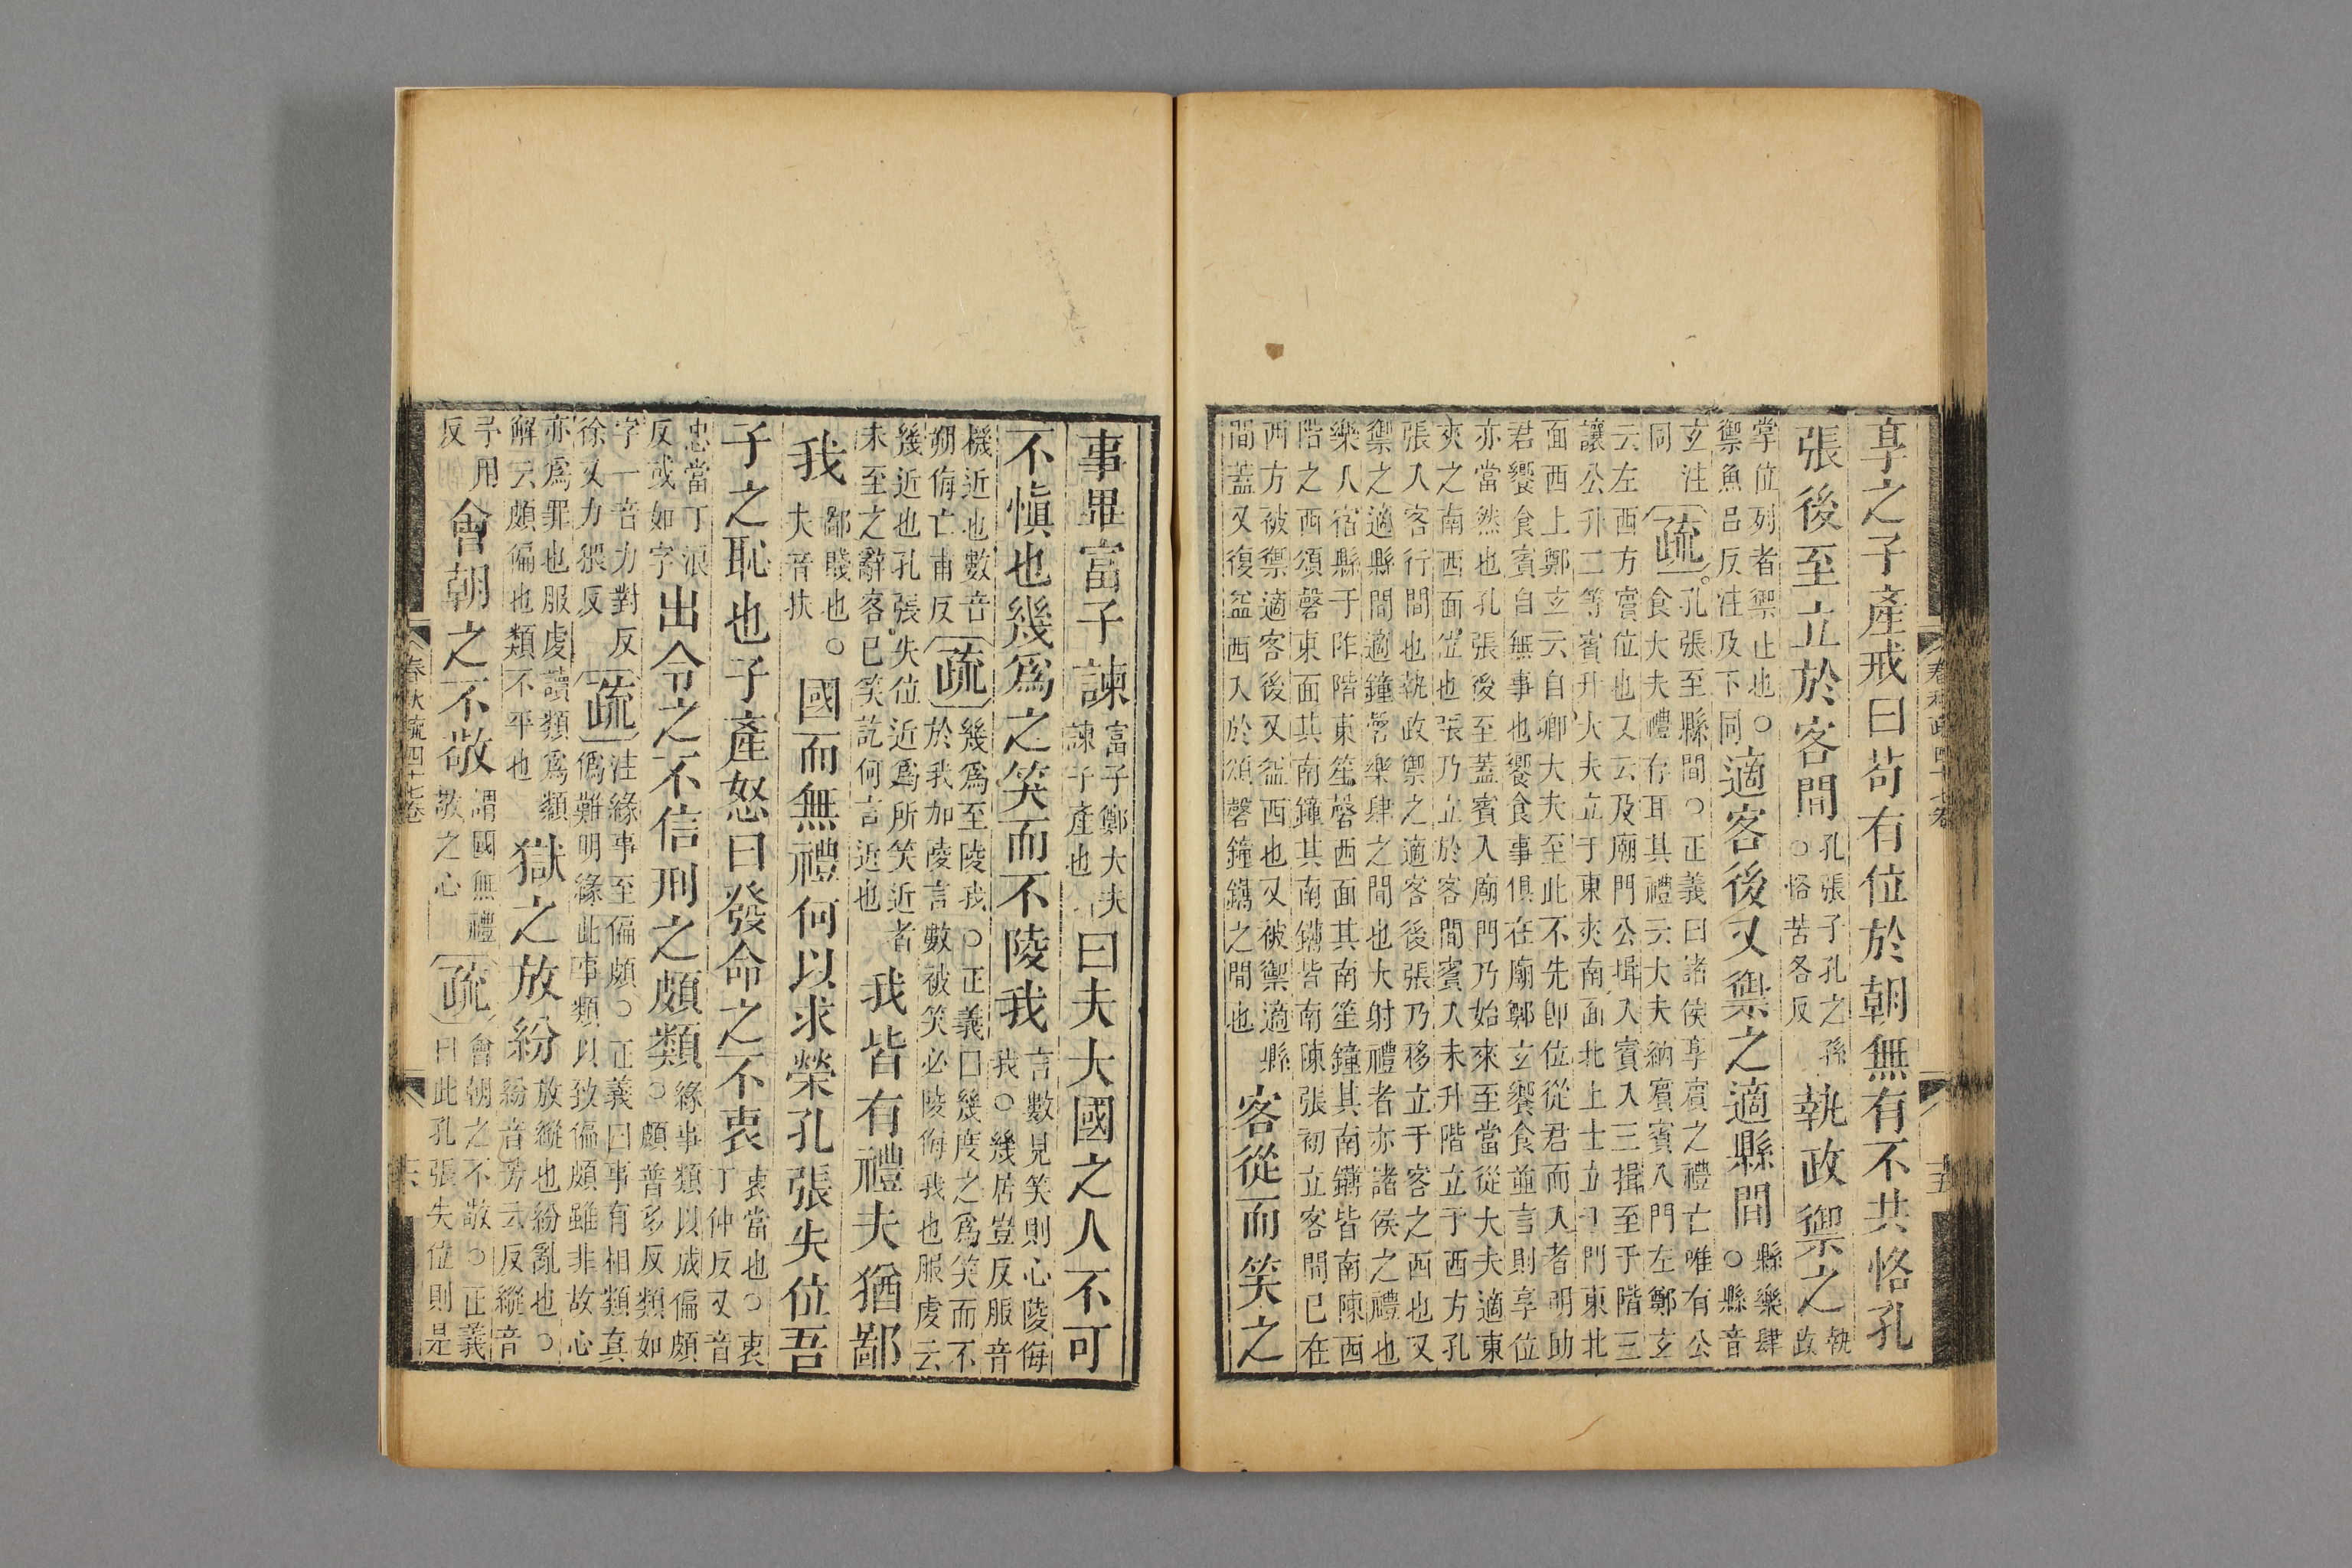 享之子產戒曰苟有位於朝無有不共恪孔
張後至立於客間孔張子孔之孫○恪苦各反執政禦之執政
掌位列者禦止也○禦魚呂反注及下同適客後又禦之適縣間縣樂肆○縣音
玄注同疏孔張至縣間○正義曰諸侯享賓之禮亡唯有公食大夫禮存耳其禮云大夫納賓賓入門左鄭玄
云左西方賓位也又云及廟門公揖入賓入三揖至于階三讓公升二等賓升大夫立于東夾南面北上士立于門東北
面西上鄭玄云自卿大夫至此不先即位從君而入者明助君饗食賓自無事也饗食事俱在廟鄭玄饗食並言則享位
亦當然也孔張後至蓋賓入廟門乃始來至當從大夫適東夾之南西面位也張乃立於客間賓入未升階立于西方孔
張入客行間也執政禦之適客後張乃移立于客之西也又禦之適縣間適鐘磬樂肆之間也大射禮者亦諸侯之禮也
樂人宿縣于阼階東笙磬西面其南笙鐘其南鑮皆南陳西階之西頌磬東面其南鐘其南鑮皆南陳張初立客間已在
西方被禦適客後又益西也又被禦適縣間蓋又復益西入於頌磬鐘鑮之間也客從而笑之
事畢富子諫富子鄭大夫諫子產也曰夫大國之人不可
不慎也幾為之笑而不陵我言數見笑則心陵侮我○幾居豈反服音
機近也數音朔侮亡甫反疏幾為至陵我○正義曰幾度之為笑而不於我加陵言數被笑必陵侮我也服虔云
幾近也孔張失位近為所笑近者未至之辭客已笑訖何言近也我皆有禮夫猶鄙
我鄙賤也○夫音扶國而無禮何以求榮孔張失位吾
子之恥也子產怒曰發命之不衷衷當也○衷丁仲反又音
忠當丁浪反或如字出令之不信刑之頗類緣事類以成偏頗○頗普多反類如
字一音力對反徐又力猥反疏注緣事至偏頗○正義曰事有相類真偽難明緣此事類以致偏頗雖非故心
亦為罪也服虔讀類為纇解云頗偏也纇不平也獄之放紛放縱也紛亂也○紛音芳云反縱音
子用反會朝之不敬謂國無禮敬之心疏會朝之不敬○正義曰此孔張失位則是
春秋疏四十七卷